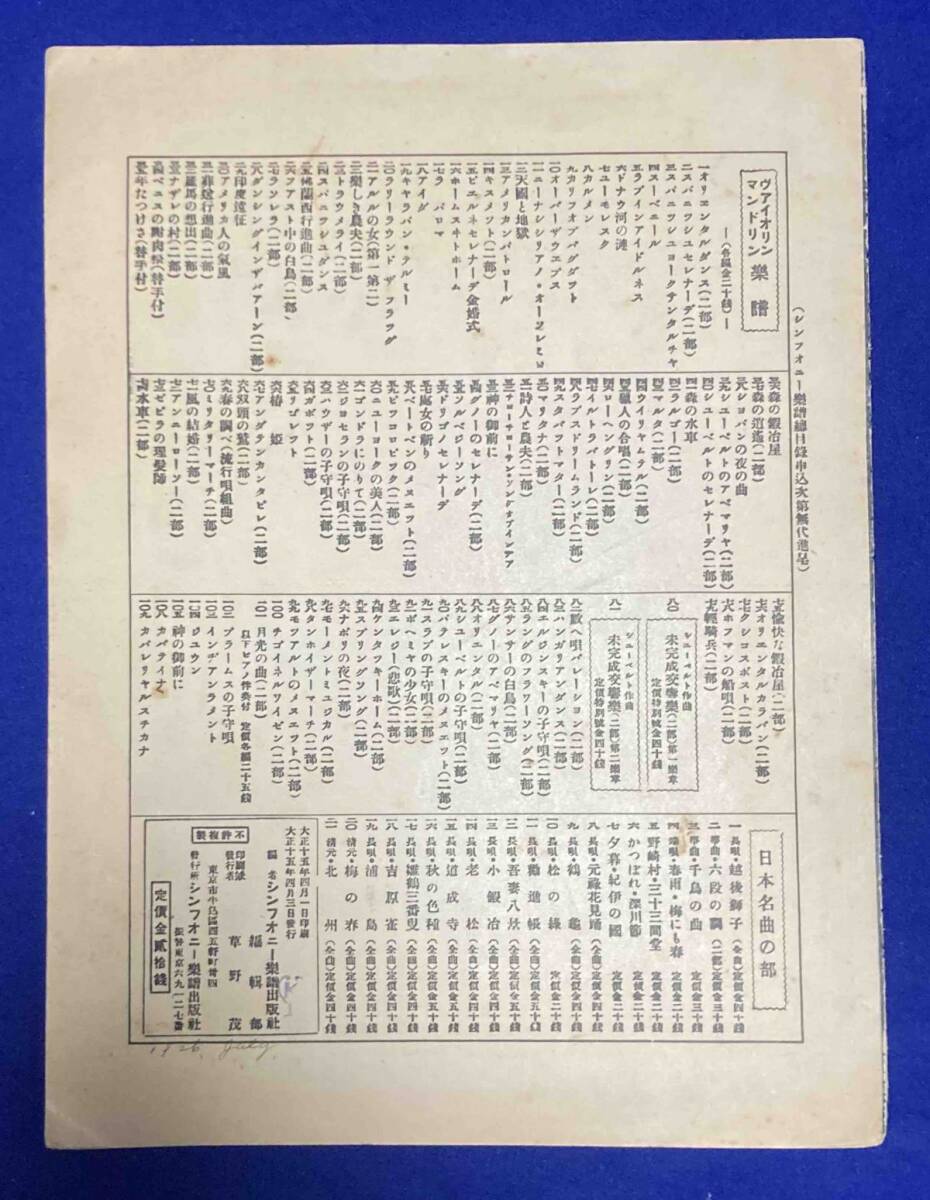 (シンフォニー樂譜總目錄申込次第無代進呈)
ヴァイオリン
マンドリン
樂譜
―(各編金二十錢)―
一オリエンタルダンス(二部)
二スパニッシュセレナーデ(二部)
三スパニッシュヨークサンタルチャ
四スーベニール
五ラブインアイドルネス
六ドナウ河の漣
七ユーモレスク
八カルメン
九カリフオブバグダット
一〇オーバーザウエブス
一二天國と地獄
一三アメリカンパトロール
一四キスメット(二部)
一五ピエルネセレナーデ金婚式
一六ホームスヰトホーム
一七ラ パロマ
一八アイダ
一九キャラバン・ラルミー
二〇ラリーラウンド ザ フラッグ
二一アルルの女(第一第二)
二二樂しき農夫(二部)
二三トラウメライ(二部)
二四スパニッシュダンス
二五佛蘭西行進曲(二部)
二六ファスト中の白鳥(二部)
二七ランレラ(二部)
二八ダンシングインザバアーン(二部)
二九印度遠征
三〇アメリカ人の氣風
三一葬送行進曲(二部)
三二羅馬の想出(二部)
三三ナザレの村(二部)
三四ベニスの謝肉祭(替手付)
三五年たつけさ(替手付)
三六森の鍛冶屋
三七森の逍遙(二部)
三八ショパンの夜の曲
三九シューベルトのアベマリヤ(二部)
四〇シューベルトのセレナーデ(二部)
四一森の水車
四二ラルゴー(二部)
四三マルタ(二部)
四四ウイリヤムテル(二部)
四五獵人の合唱(二部)
四六ローヘングリン(二部)
四七イルトラバトーレ(二部)
四八ラブスドリームランド(二部)
四九スタバットマター(二部)
五〇マリタナ(二部)
五一詩人と農夫(二部)
五三神の御前に
五四グノーのセレナーデ(二部)
五五ソルベジーソング
五六ドリゴのセレナーデ
五七處女の祈り
五八ベートベンのメヌエット(二部)
五九ピッコロピック(二部)
六〇ニューヨークの美人(二部)
六一ゴンドラにのりて(二部)
六二ジョセランの子守唄(二部)
六三ハウザーの子守唄(二部)
六四ガボット(二部)
六五リゴレット
六六椿 姫
六七アンダランカンタビレ(二部)
六八双頭の鷲(二部)
六九春の調べ(流行唄組曲)
七〇ミリタリーマーチ(二部)
七一風の結婚(二部)
七二アンニーローソー(二部)
七三ゼビラの理髮師
七四水車(二部)
七五愉快な鍛冶屋(二部)
七六オリエンタルカラバン(二部)
七七クシコスポスト(二部)
七八ホフマンの船唄(二部)
七九輕騎兵(二部)
八〇 シューベルト作曲
未完成交響樂(二部)第一樂章
定價特別號金四十錢
八一 シューベルト作曲
未完成交響樂(二部)第二樂章
定價特別號金四十錢
八二數へ唄バレーション(二部)
八三ハンガリアンダンス(二部)
八四エルジンスキーの子守唄(二部)
八五ラングのフラワーソング(二部)
八六サンサーの白鳥(二部)
八七グノーのアベマリヤ(二部)
八八オリエンタル(二部)
八九シューベルトの子守唄(二部)
九〇バラレスキーのメヌエット(二部)
九一スラブの子守唄(二部)
九二ボヘミヤの少女(二部)
九三エレジー(悲歌)(二部)
九四ケンタッキーホーム(二部)
九五スプリングソング(二部)
九六ナポリの夜(二部)
九七モーメントミュジカル(二部)
九八タンホイザーマーチ(二部)
九九モツアルトのメヌエット(二部)
一〇〇チゴイネルワイゼン(二部)
一〇一月光の曲(二部)
以下ピアノ伴奏付 定價各編二十五錢
一〇二ブラームスの子守唄
一〇三インデアンラメント
一〇四ジユウン
一〇五神の御前に
一〇八カバテイナ
一〇九カバレリヤルスチカナ
日本名曲の部
一 長唄・越後獅子(全曲)定價金四十錢
二 箏曲・六段の調(二部)定價金三十錢
三 箏曲・千鳥の曲(全曲)定價金三十錢
四 端唄・春雨・梅にも春 定價金二十錢
五 野崎村・三十三間堂 定價金二十錢
六 かつぽれ・深川節 定價金二十錢
七 夕暮・紀伊の國 定價金二十錢
八 長唄・元祿花見踊(全曲)定價金四十錢
九 長唄・鶴 龜(全曲)定價金四十錢
一〇 長唄・松の綠 定價金二十錢
一一 長唄・勸進帳(全曲)定價金五十錢
一二 長唄・吾妻八景(全曲)定價金四十錢
一三 長唄・小鍛冶(全曲)定價金四十錢
一四 長唄・老 松(全曲)定價金四十錢
一五 長唄・道成寺(全曲)定價金四十錢
一六 長唄・秋の色種(全曲)定價金五十錢
一七 長唄・雛鶴三番叟(全曲)定價金四十錢
一八 長唄・吉原雀(全曲)定價金四十錢
一九 長唄・浦 島(全曲)定價金四十錢
二〇 清元・梅の春(全曲)定價金四十錢
二一 清元・北 州(全曲)定價金四十錢
大正十五年四月一日印刷
大正十五年四月三日發行
不許複製
編者 シンフォニー樂譜出版社
編輯部
印刷兼
發行者 草野 茂
東京市牛込區西五軒町廿四
發行所 シンフォニー樂譜出版社
振替東京六九一二七番
定價金貳拾錢
1926. July.